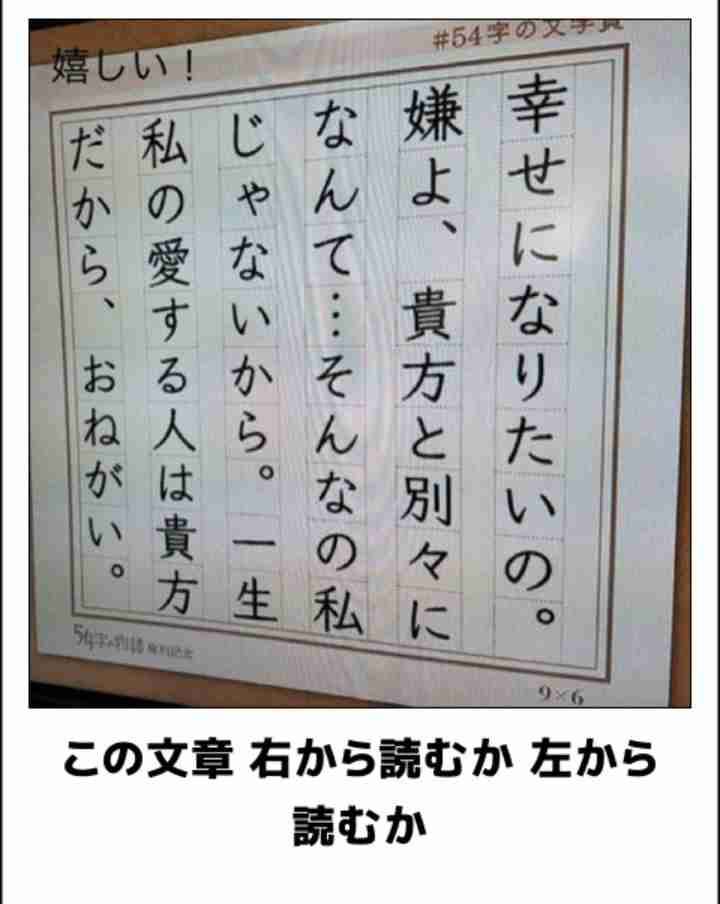 #54字の文学賞
嬉しい！
幸せになりたいの。
嫌よ、貴方と別々に
なんて…そんなの私
じゃないから。一生
私の愛する人は貴方
だから、おねがい。
54字の物語
9×6
この文章 右から読むか 左から
読むか